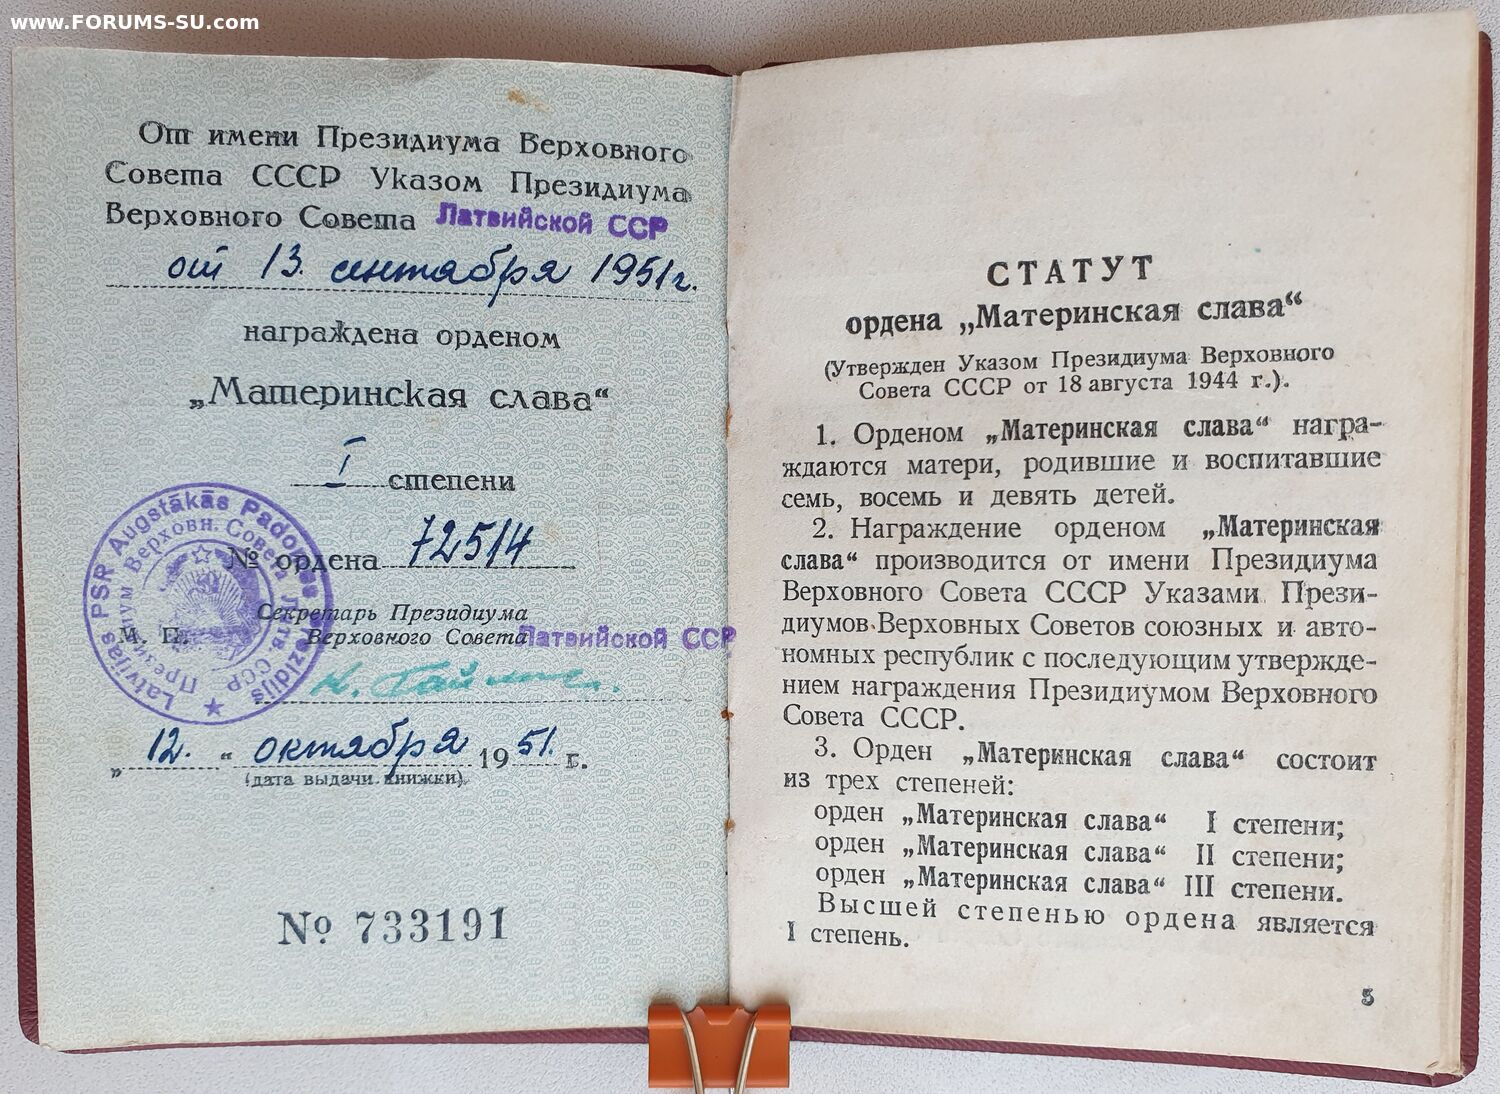 www.FORUMS-SU.com
От имени Президиума Верховного
Совета СССР Указом Президиума
Верховного Совета Латвийской ССР
от 13. сентября 1951 г.
награждена орденом
„Материнская слава“
I степени
№ ордена 72514
Latvijas PSR Augstākās Padomes Prezidijs
Президиум Верховн. Совета Латв. ССР
М. П.
Секретарь Президиума
Верховного Совета Латвийской ССР
„ 12. “ октября 1951. г.
(дата выдачи книжки)
№ 733191
СТАТУТ
ордена „Материнская слава“
(Утвержден Указом Президиума Верховного
Совета СССР от 18 августа 1944 г.).
1. Орденом „Материнская слава“ награ-
ждаются матери, родившие и воспитавшие
семь, восемь и девять детей.
2. Награждение орденом „Материнская
слава“ производится от имени Президиума
Верховного Совета СССР Указами Прези-
диумов Верховных Советов союзных и авто-
номных республик с последующим утвержде-
нием награждения Президиумом Верховного
Совета СССР.
3. Орден „Материнская слава“ состоит
из трех степеней:
орден „Материнская слава“ I степени;
орден „Материнская слава“ II степени;
орден „Материнская слава“ III степени.
Высшей степенью ордена является
I степень.
3